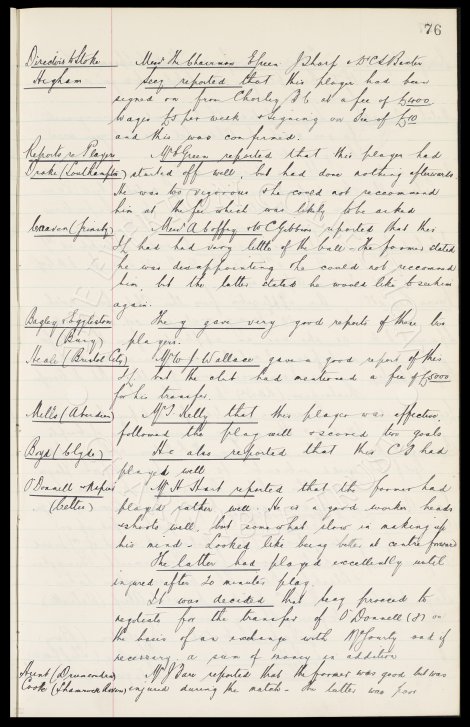 76
Directors to Stoke Messrs The Chairman E Green J Sharp & Dr C S Baxter
Higham Secy reported that this player had been
signed on from Chorley F.C. at a fee of £400
Wages £5 per week & signing on fee of £10
and this was confirmed.
Reports re Players Mr E Green reported that this player had
Drake (Southampton) started off well, but had done nothing afterwards
He was too vigorous & he could not recommend
him at the fee which was likely to be asked
Craven (Grimsby) Messrs A Coffey & C Gibbins reported that this
I.F. had had very little of the ball. The former stated
he was disappointing & he could not recommend
him, but the latter stated he would like to see him
again.
Bagley & Eggleston The y gave very good reports of these two
(Bury) players.
Neale (Bristol City) Mr W J Wallace gave a good report of this
but the club had mentioned a fee of £5000
for his transfer.
Mills (Aberdeen) Mr T Kelly that this player was effective,
followed the play well & scored two goals
Boyd (Clyde) He also reported that this C.F. had
played well
O'Donnell & Napier Mr H Hart reported that the former had
(Celtic) played rather well. He is a good worker, heads
& shoots well, but somewhat slow in making up
his mind. Looked like being better at centre forward
The latter had played excellently until
injured after 20 minutes play.
It was decided that Secy proceed to
negotiate for the transfer of O'Donnell (F) on
the basis of an exchange with McGourty and if
necessary a sum of money in addition
Agent (Drumcondra) Mr J Fare reported that the former was good but was
Cook (Shamrock Rovers) injured during the match. The latter was poor